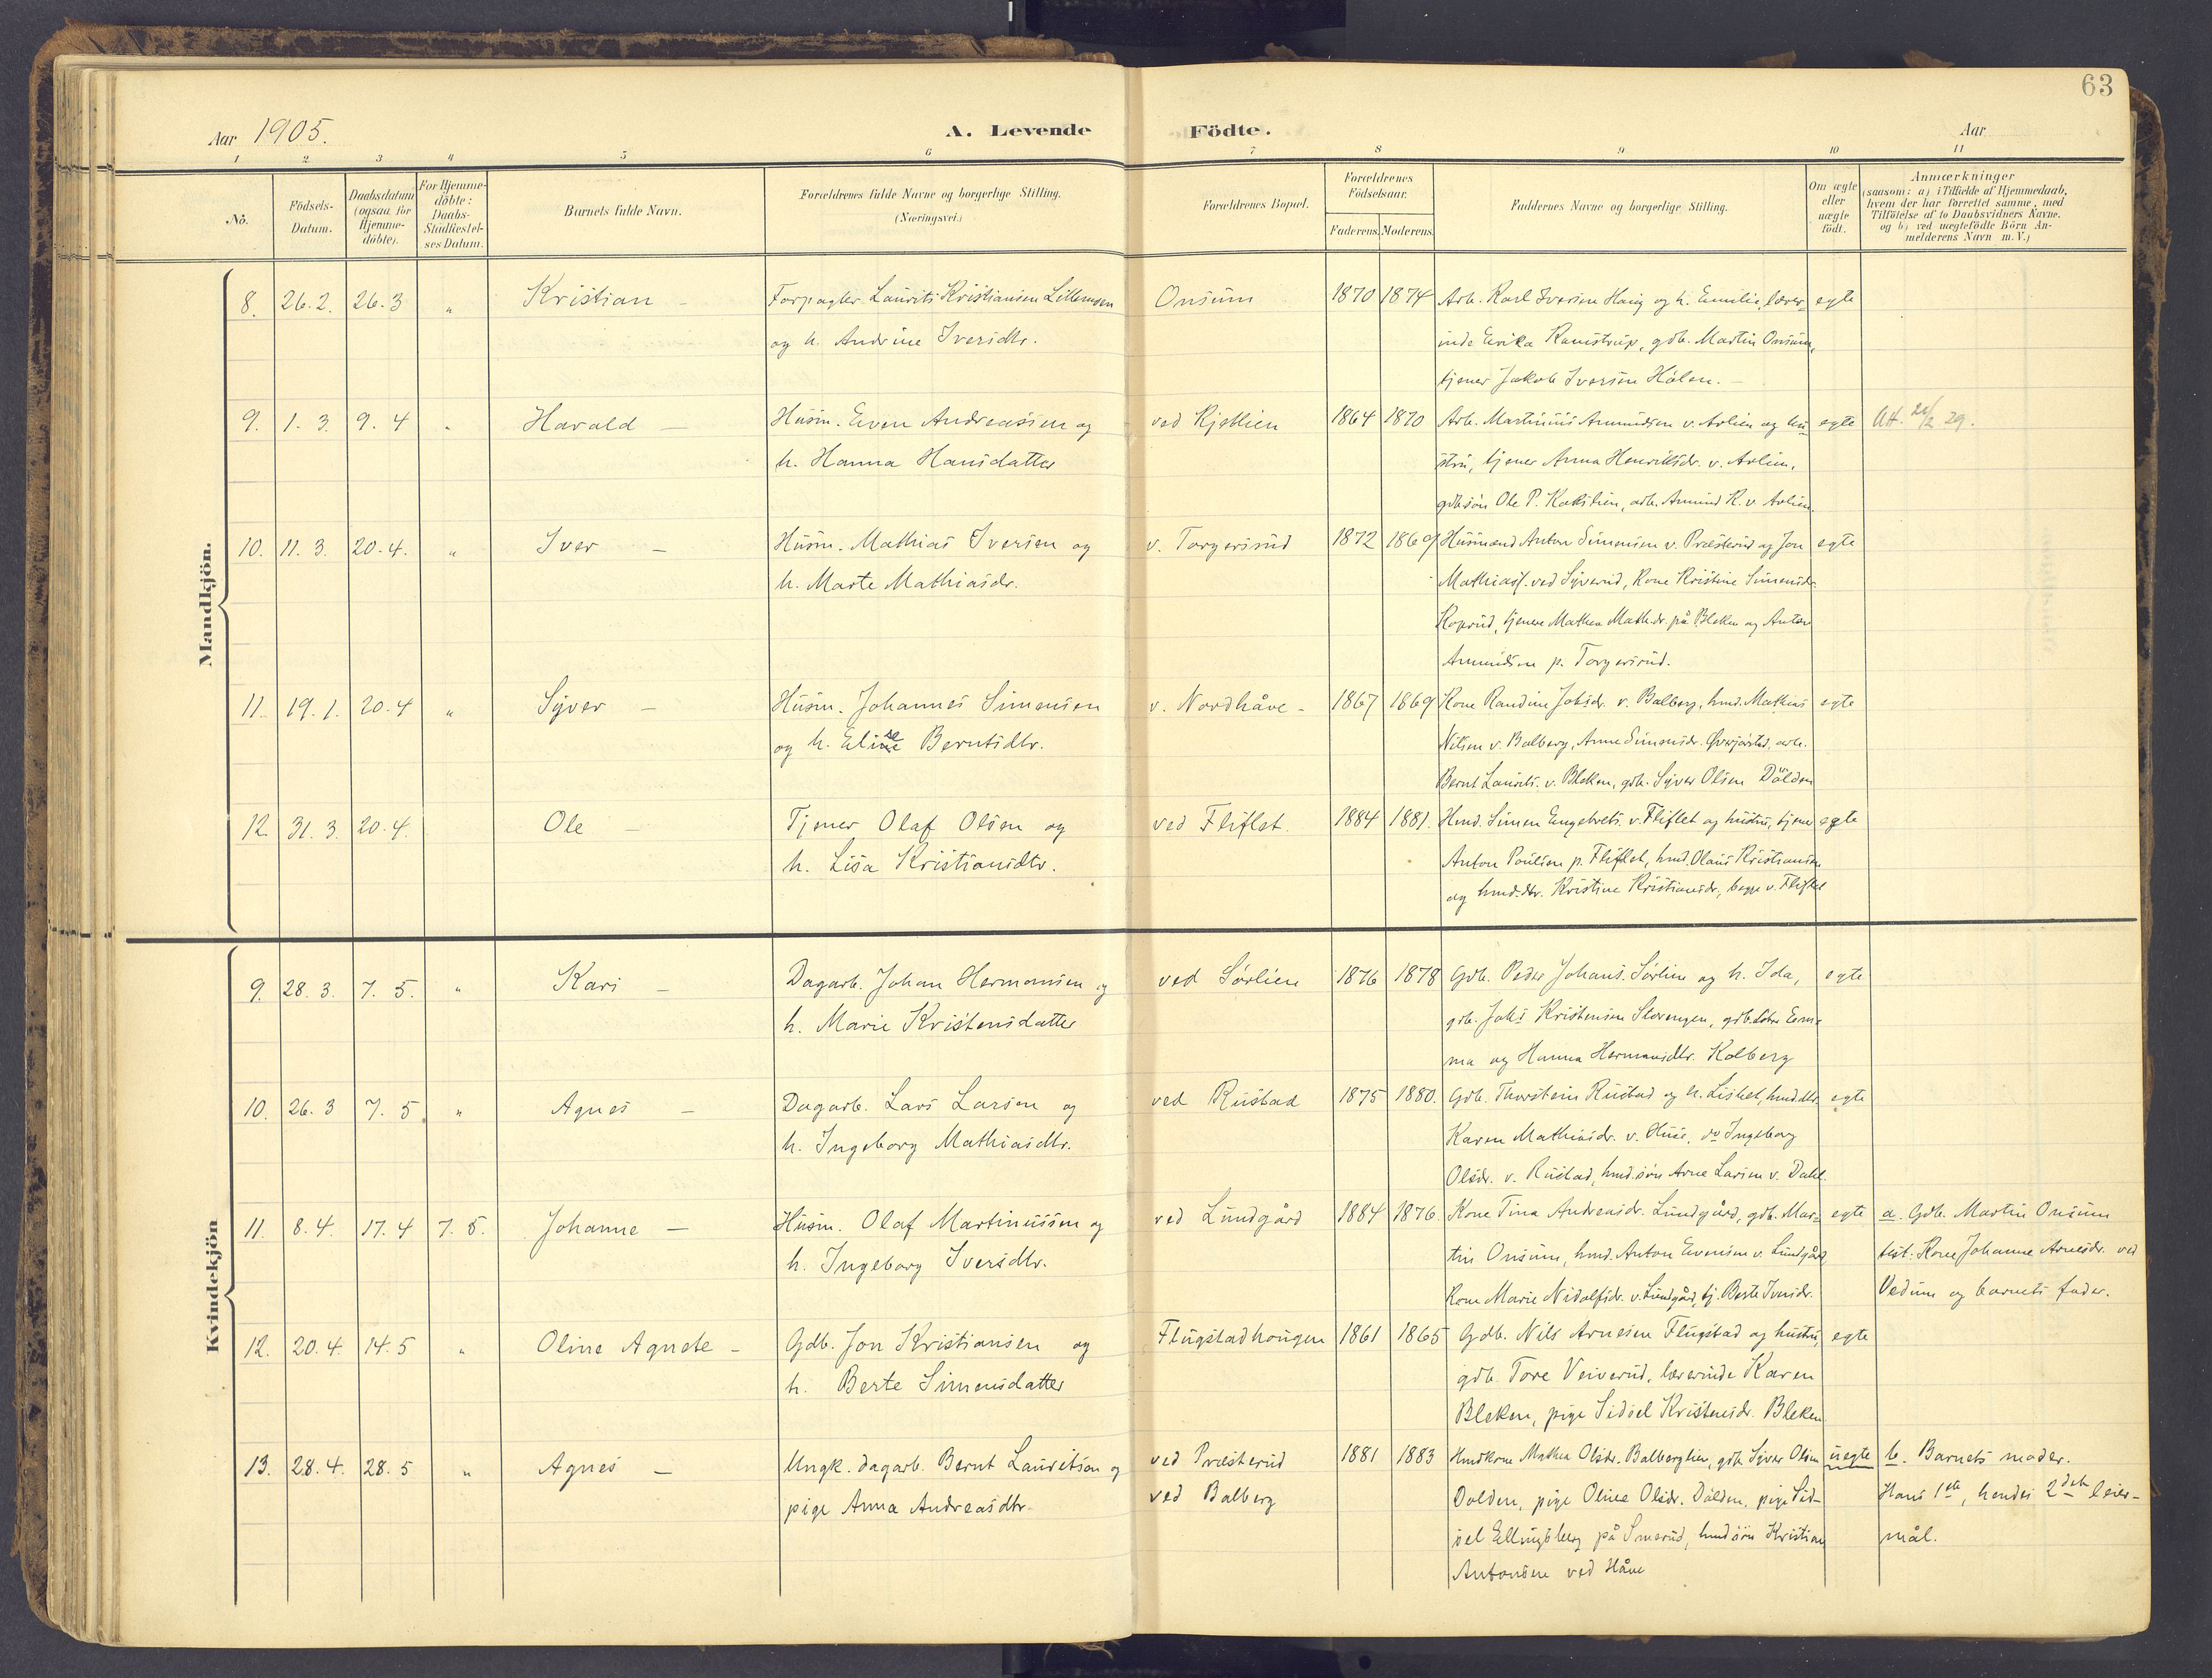 63
Aar 1905.
A. Levende Födte.
Aar
1 2 3 4 5 6 7 8 9 10 11
No.
Födsels-Datum.
Daabsdatum (ogsaa for Hjemme-döbte).
For Hjemme-döbte: Daabs-Stadfæstel-ses Datum.
Barnets fulde Navn.
Forældrenes fulde Navne og borgerlige Stilling.
(Næringsvei.)
Forældrenes Bopæl.
Forældrenes Födselsaar.
Faderens. Moderens.
Faddernes Navne og borgerlige Stilling.
Om ægte eller uægte födt.
Anmærkninger
(saasom: a) i Tilfælde af Hjemmedaab,
hvem der har forrettet samme, med
Tilföielse af to Daabsvidners Navne,
og b) ved uægtefödte Börn An-
melderens Navn m. V.)
Mandkjön.
8. 26.2. 26.3 " Kristian – Forpagter Laurits Kristiansen Onsum 1870 1874 Arb. Karl Iversen Haug og h. Emilie, lærer- egte
og h. Andrine Iversdtr. inde Erika Ramstrup, gdb. Martin Onsum,
tjener Jakob Iversen Hólen. –
9. 1.3. 9.4 " Harald – Husm. Even Andreassen og ved Kjetlien 1864 1870 Arb. Martinius Amundsen v. Avlien og hu- egte
h. Hanna Hansdatter stru, tjener Anna Henriksdr. v. Avlien,
gdbsön Ole P. arb. Amund K. v. Avlien
10. 11.3. 20.4. " Iver – Husm. Mathias Iversen og v. Torgersrud 1872 1869 Husmænd Anton Simensen v. Præsterud og Jon egte
h. Marte Mathiasdr. Mathias. ved Syverud, Kone Kristine Simensdr.
Koprud, tjener Mathea Mathdr. på Bleken og Anton
Amundsen p. Torgersrud.
11. 19.1. 20.4 " Syver – Husm. Johannes Simensen v. Nordhåve – 1867 1869 Kone Randine Jakobsdr. v. Balberg, hmd. Mathias egte
og h. Elise Berntsdtr. Nilsen v. Balberg, Anne Simensdr. arb.
Bernt Laurits. v. Bleken, gdb. Syver Olsen Dölden
12. 31.3. 20.4. Ole – Tjener Olaf Olsen og ved Fliflet. 1884 1881. Hmd. Simen Engebrets. v. Fliflet og hustru, tjener egte
h. Lisa Kristiansdtr. Anton Poulsen p. Fliflet, hmd. Olaus Kristiansen
og hmd.dtr. Kristine Kristiansdr., begge v. Fliflet
Kvindekjön
9. 28.3. 7.5. " Kari – Dagarb. Johan Hermansen og ved Sörlien 1876 1878 Gdb. Peder Johans. Sörlien og h. Ida, egte
h. Marie Kristensdatter gdb. Johs Kristensen gdb.dötre Em-
ma og Hanna Hermansdtr. Kolberg
10. 26.3 7.5. " Agnes – Dagarb. Lars Larsen og ved Rustad 1875 1880. Gdb. Thorstein Rustad og h. Lisbet, hmd.dtr. egte
h. Ingeborg Mathiasdtr. Karen Mathiasdr. v. Huse, do Ingeborg
Olsdr. v. Rustad, hmd.sön Arne Larsen v. Dahl.
11. 8.4. 17.4 7.5. Johanne – Husm. Olaf Martinussen og ved Lundgård 1884 1876. Kone Tina Andreasdr. Lundgård, gdb. Mar- egte a. Gdb. Martin Onsum
h. Ingeborg Iversdtr. tin Onsum, hmd. Anton Evensen v. Lundgård, test: Kone Johanne Arnesdr. ved
Kone Marie Nidolfsdr. v. Lundgård, tj. Berte Iversdr. Vedum og barnets fader.
12. 20.4. 14.5 " Oline Agnete – Gdb. Jon Kristiansen og Flugstadhaugen 1861 1865 Gdb. Nils Arnesen Flugstad og hustru, egte
h. Berte Simensdatter gdb. Tore Veiverud, lærerinde Karen
Bleken, pige Sidsel Kristensdr. Bleken
13. 28.4. 28.5 " Agnes – Ungk. dagarb. Bernt Lauritsen og ved Præsterud 1881 1883 Hmdkone Mathea Olsdr. Balberglien, gdb. Syver Olsen uegte b. Barnets moder.
pige Anna Andreasdtr. ved Balberg Dolden, pige Oline Olsdr. Dölden, pige Sid- Hans 1ste, hendes 2det leier-
sel Ellingsberg på Smerud, hmd.sön Kristian mål.
Antonsen ved Håve